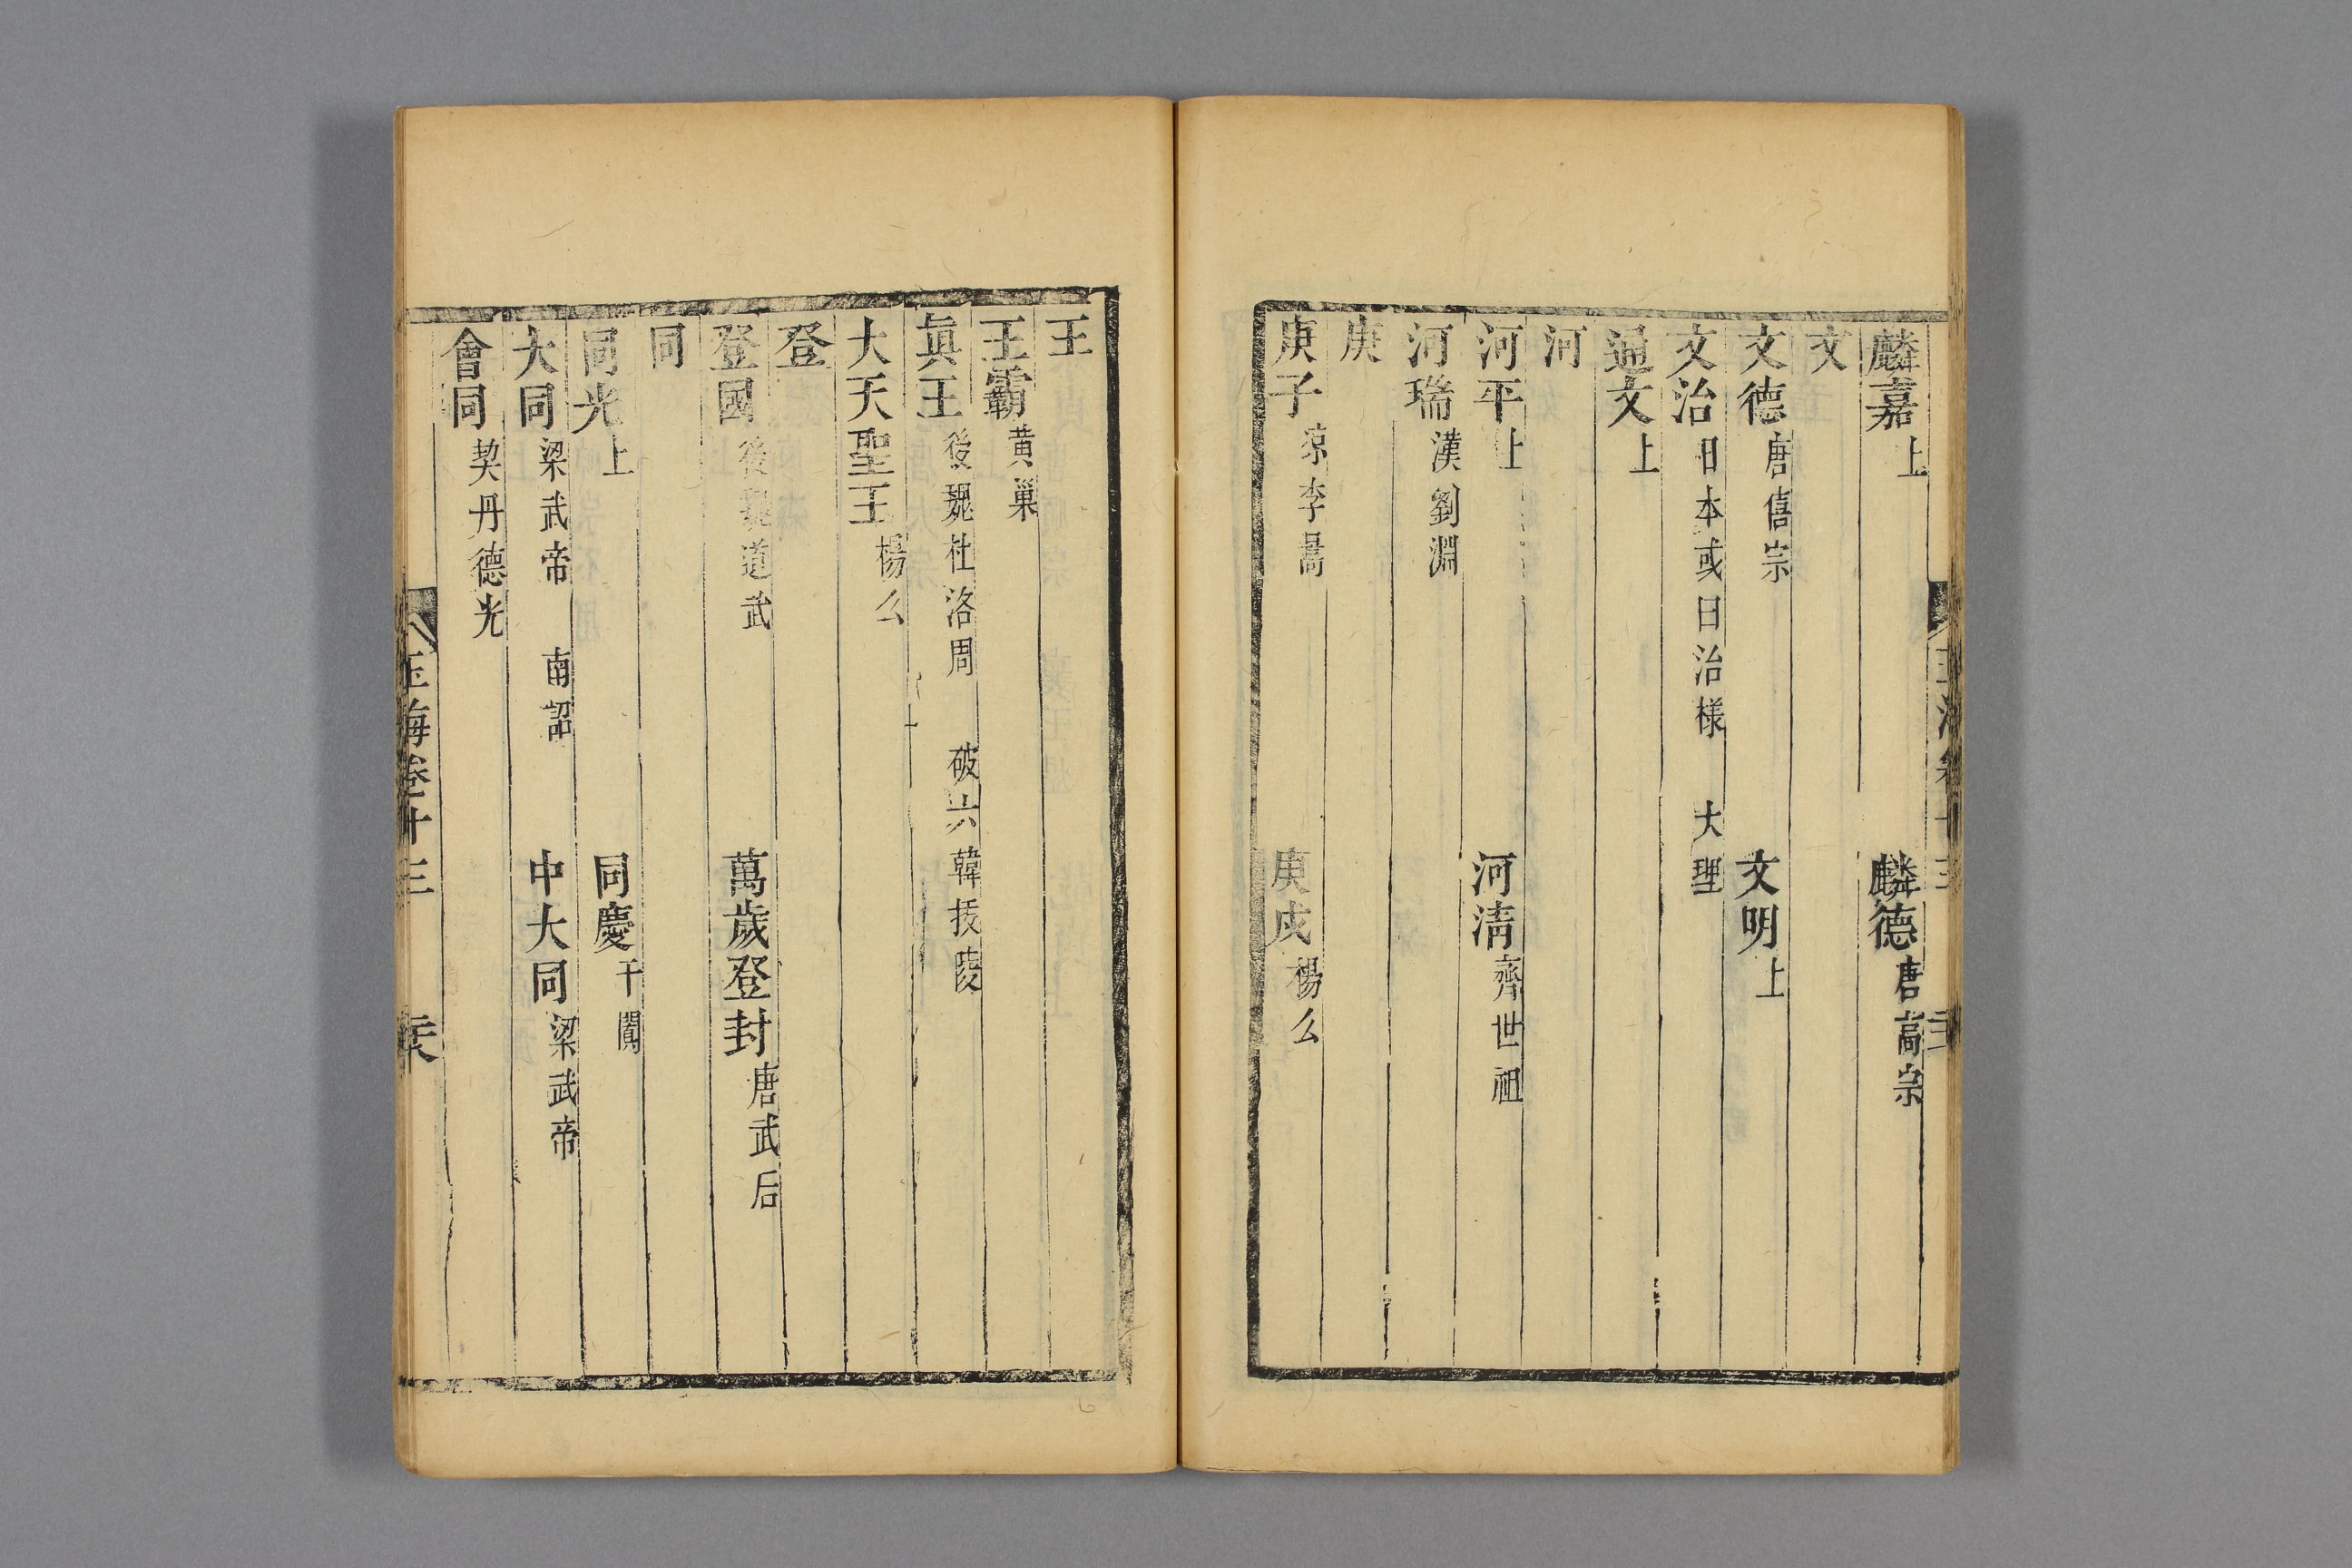 麟嘉上 麟德唐高宗
文
文德唐僖宗 文明上
文治日本或曰治樣 大理
通文上
河
河平上 河清齊世祖
河瑞漢劉淵
庚
庚子涼李暠 庚戌楊么
王
王霸黄巢
眞王後魏杜洛周 破六韓拔陵
大天聖王楊么
登
登國後魏道武 萬歲登封唐武后
同
同光上 同慶于闐
大同梁武帝 南詔 中大同梁武帝
會同契丹德光
玉海卷十三